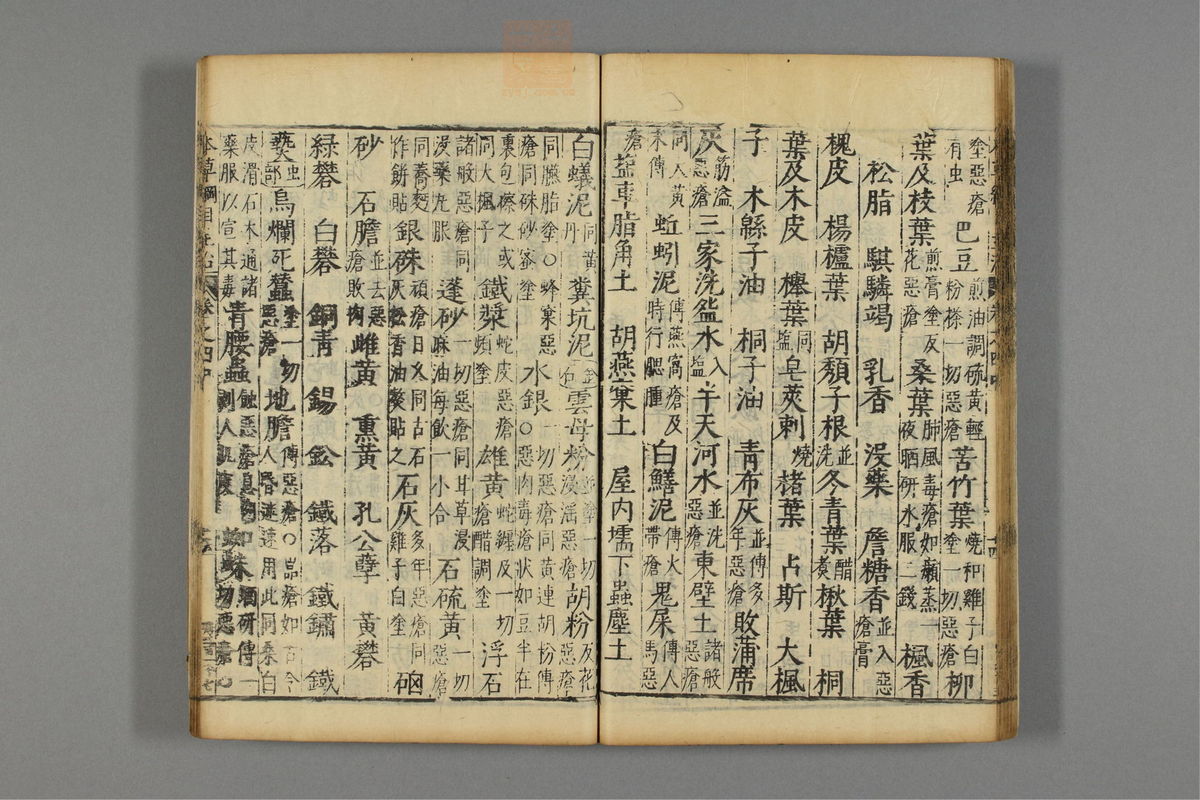 塗惡瘡有虫 巴豆 煎油調硫黃輕粉搽一切惡瘡 苦竹葉 燒和雞子白塗一切惡瘡 柳
葉及枝葉 煎膏塗反花惡瘡 桑葉 肺風毒瘡如癩蒸一夜晒研水服二錢 楓香
松脂 騏驎竭 乳香 沒藥 詹糖香 並入惡瘡膏
槐皮 楊櫨葉 胡頹子根 並洗 冬青葉 醋煮 楸葉 桐
葉及木皮 櫸葉 同鹽 皂莢刺 燒 楮葉 占斯 大楓
子 木緜子油 桐子油 青布灰 並傅多年惡瘡 敗蒲席
灰 筋溢惡瘡 三家洗盌水 入塩 半天河水 並洗惡瘡 東壁土 諸般惡瘡
同人黃末傅 蚯蚓泥 傅燕窩瘡及時行腮腫 白鱔泥 傅火帶瘡 鬼屎 傅人馬惡
瘡 鹽車脂角土 胡燕窠土 屋内壖下蟲塵土
白蟻泥 同黃丹 糞坑泥 雲母粉 並塗一切浸滛惡瘡 胡粉 反花惡瘡
同臙脂塗○蜂窠惡瘡同硃砂蜜塗 水銀 一切惡瘡同黃連胡粉傅○惡肉毒瘡狀如豆半在
裏包擦之或同大楓子 鐵漿 蛇皮惡瘡頻塗 雄黃 蛇纏及一切惡瘡醋調塗 浮石
諸般惡瘡同沒藥丸服 蓬砂 一切惡瘡同甘草浸麻油每飲一小合 石硫黃 一切惡瘡
同蕎麪作餅貼 銀硃 頑瘡日久同古石灰松香油熬貼之 石灰 多年惡瘡同雞子白塗 硇
砂 石膽 並去惡瘡敗肉 雌黃 熏黃 孔公孽 黃礬
綠礬 白礬 銅青 錫 鈆 鐵落 鐵鏽 鐵
爇 虫部 烏爛死蠶 塗一切惡瘡 地膽 傅惡瘡○嵒瘡如舌令人昏迷速用此同桑白
皮滑石木通諸藥服以宣其毒 青腰蟲 蝕惡瘡息肉剝人肌皮 蜘蛛 晒研傅一切惡瘡
本草綱目主治 卷之四